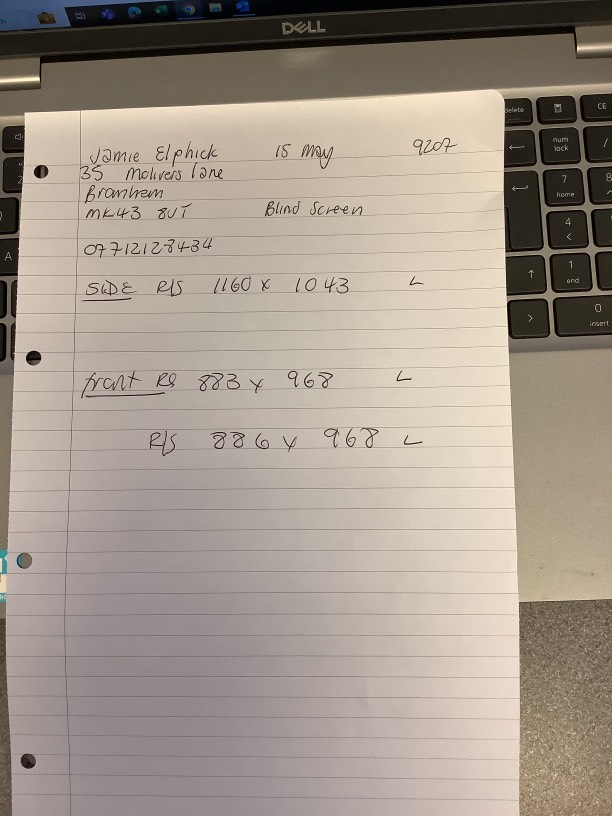 DELL
Jamie Elphick 15 May 9207
35 Molivers Lane
Bromham
MK43 8UT Blind Screen
07712128434
SIDE R/S 1160 x 1043 L
front RS 883 x 968 L
R/S 886 x 968 L
delete
CE
num lock
/
7 home
8
4
<
1 end
0 insert
A